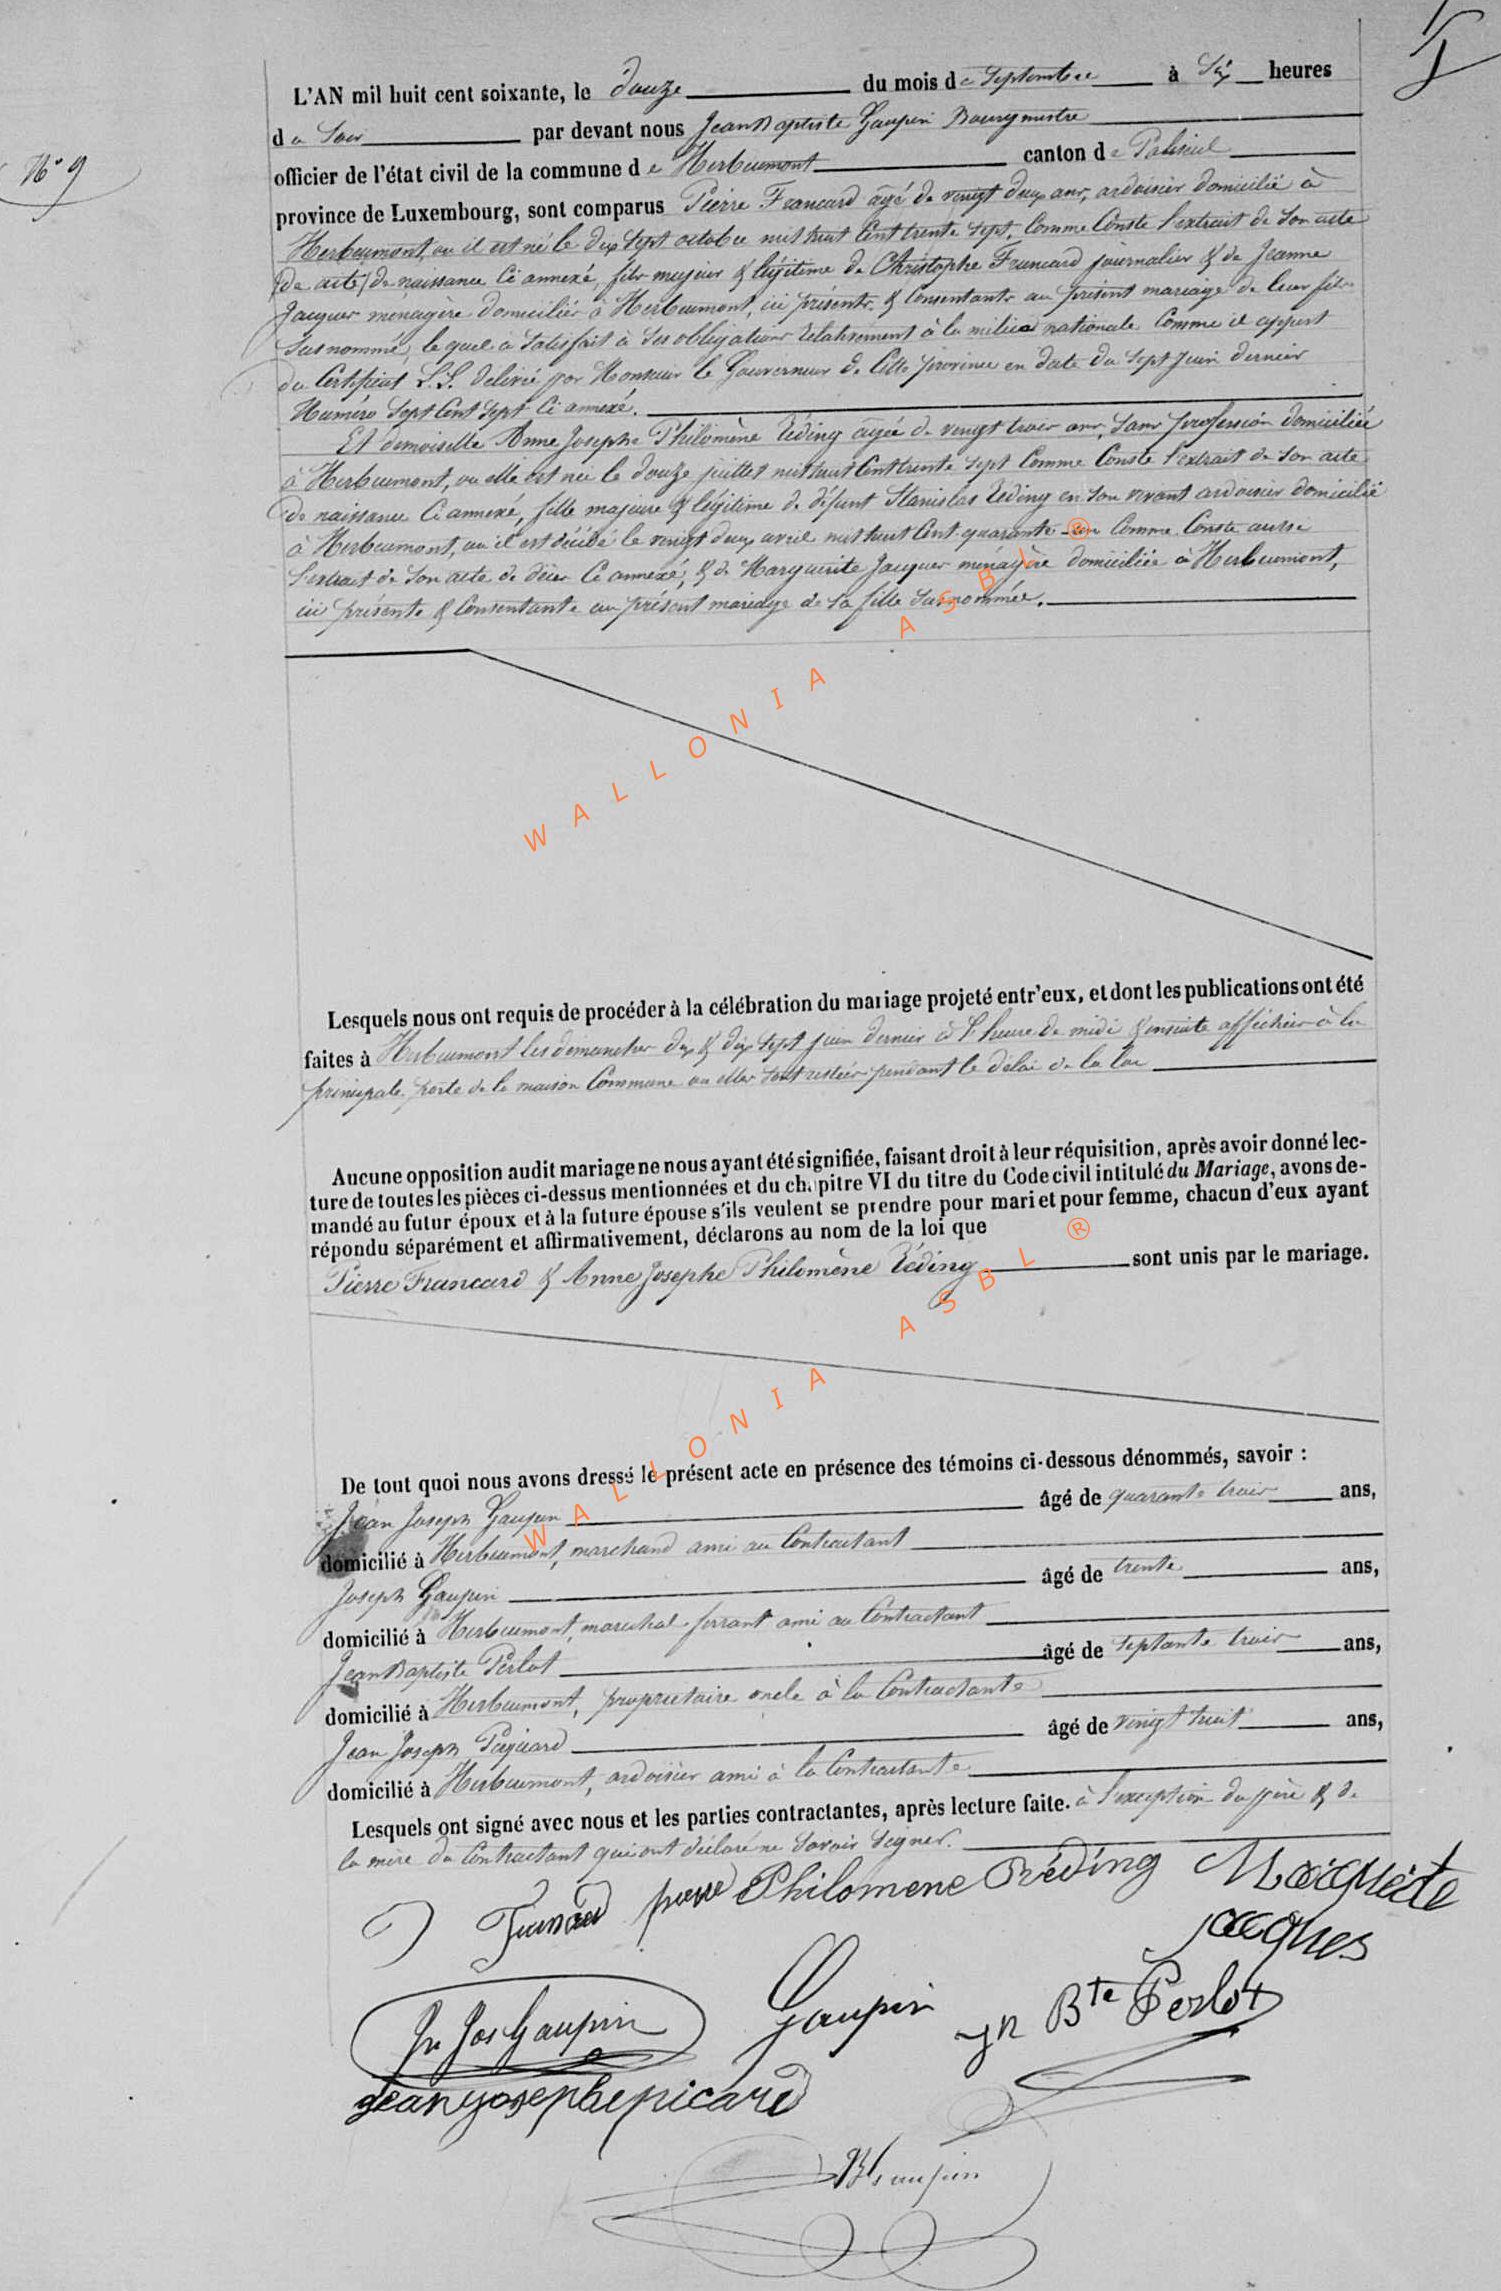 N° 9
L'AN mil huit cent soixante, le douze du mois de Septembre à Six heures
du Soir par devant nous Jean Baptiste Gaupin Bourgmestre
officier de l'état civil de la commune de Herbeumont canton de Paliseul
province de Luxembourg, sont comparus Pierre Francard âgé de vingt deux ans, ardoisier domicilié à
Herbeumont, où il est né le dix sept octobre mil huit Cent trente sept, Comme Conste l'extrait de Son acte
(de acte) de naissance Ci annexé, fils majeur & légitime de Christophe Francard journalier & de Jeanne
Jacques ménagère domiciliés à Herbeumont, ici présents & Consentants au présent mariage de leur fils
Susnommé, lequel a Satisfait à Ses obligations Relativement à la milice nationale Comme il appert
du Certificat L.L. délivré par Monsieur le Gouverneur de Cette province en date du Sept Juin dernier
Numéro Sept Cent Sept Ci annexé.
Et demoiselle Anne Josephe Philomène Réding âgée de vingt trois ans, Sans profession domiciliée
à Herbeumont, où elle est née le douze juillet mil huit Cent trente Sept Comme Conste l'extrait de Son acte
de naissance Ci annexé, fille majeure & légitime de défunt Stanislas Réding en Son vivant ardoisier domicilié
à Herbeumont, où il est décédé le vingt deux avril mil huit Cent quarante un Comme Conste aussi
l'extrait de Son acte de décès Ci annexé, & de Marguerite Jacques ménagère domiciliée à Herbeumont,
ici présente & Consentante au présent mariage de Sa fille Susnommée.
WALLONIA ASBL ®
Lesquels nous ont requis de procéder à la célébration du mariage projeté entr'eux, et dont les publications ont été
faites à Herbeumont les dimanches dix & dix Sept juin dernier à l'heure de midi & ensuite affichées à la
principale porte de la maison Commune où elles Sont restées pendant le délai de la loi
Aucune opposition audit mariage ne nous ayant été signifiée, faisant droit à leur réquisition, après avoir donné lec-
ture de toutes les pièces ci-dessus mentionnées et du chapitre VI du titre du Code civil intitulé du Mariage, avons de-
mandé au futur époux et à la future épouse s'ils veulent se prendre pour mari et pour femme, chacun d'eux ayant
répondu séparément et affirmativement, déclarons au nom de la loi que
Pierre Francard & Anne Josephe Philomène Réding sont unis par le mariage.
WALLONIA ASBL ®
De tout quoi nous avons dressé le présent acte en présence des témoins ci-dessous dénommés, savoir :
Jean Joseph Gaupin âgé de quarante trois ans,
domicilié à Herbeumont, marchand ami au Contractant
Joseph Gaupin âgé de trente ans,
domicilié à Herbeumont, maréchal-ferrant ami au Contractant
Jean Baptiste Perlot âgé de Septante trois ans,
domicilié à Herbeumont, propriétaire oncle à la Contractante
Jean Joseph Picard âgé de vingt huit ans,
domicilié à Herbeumont, ardoisier ami à la Contractante
Lesquels ont signé avec nous et les parties contractantes, après lecture faite. à l'exception du père & de
la mère du Contractant qui ont déclaré ne Savoir Signer.
Francard pierre Philomene Réding Marguerite
jacques
Jn Jos Gaupin Gaupin Jn Bte Perlot
jean josephe picard
JB Gaupin